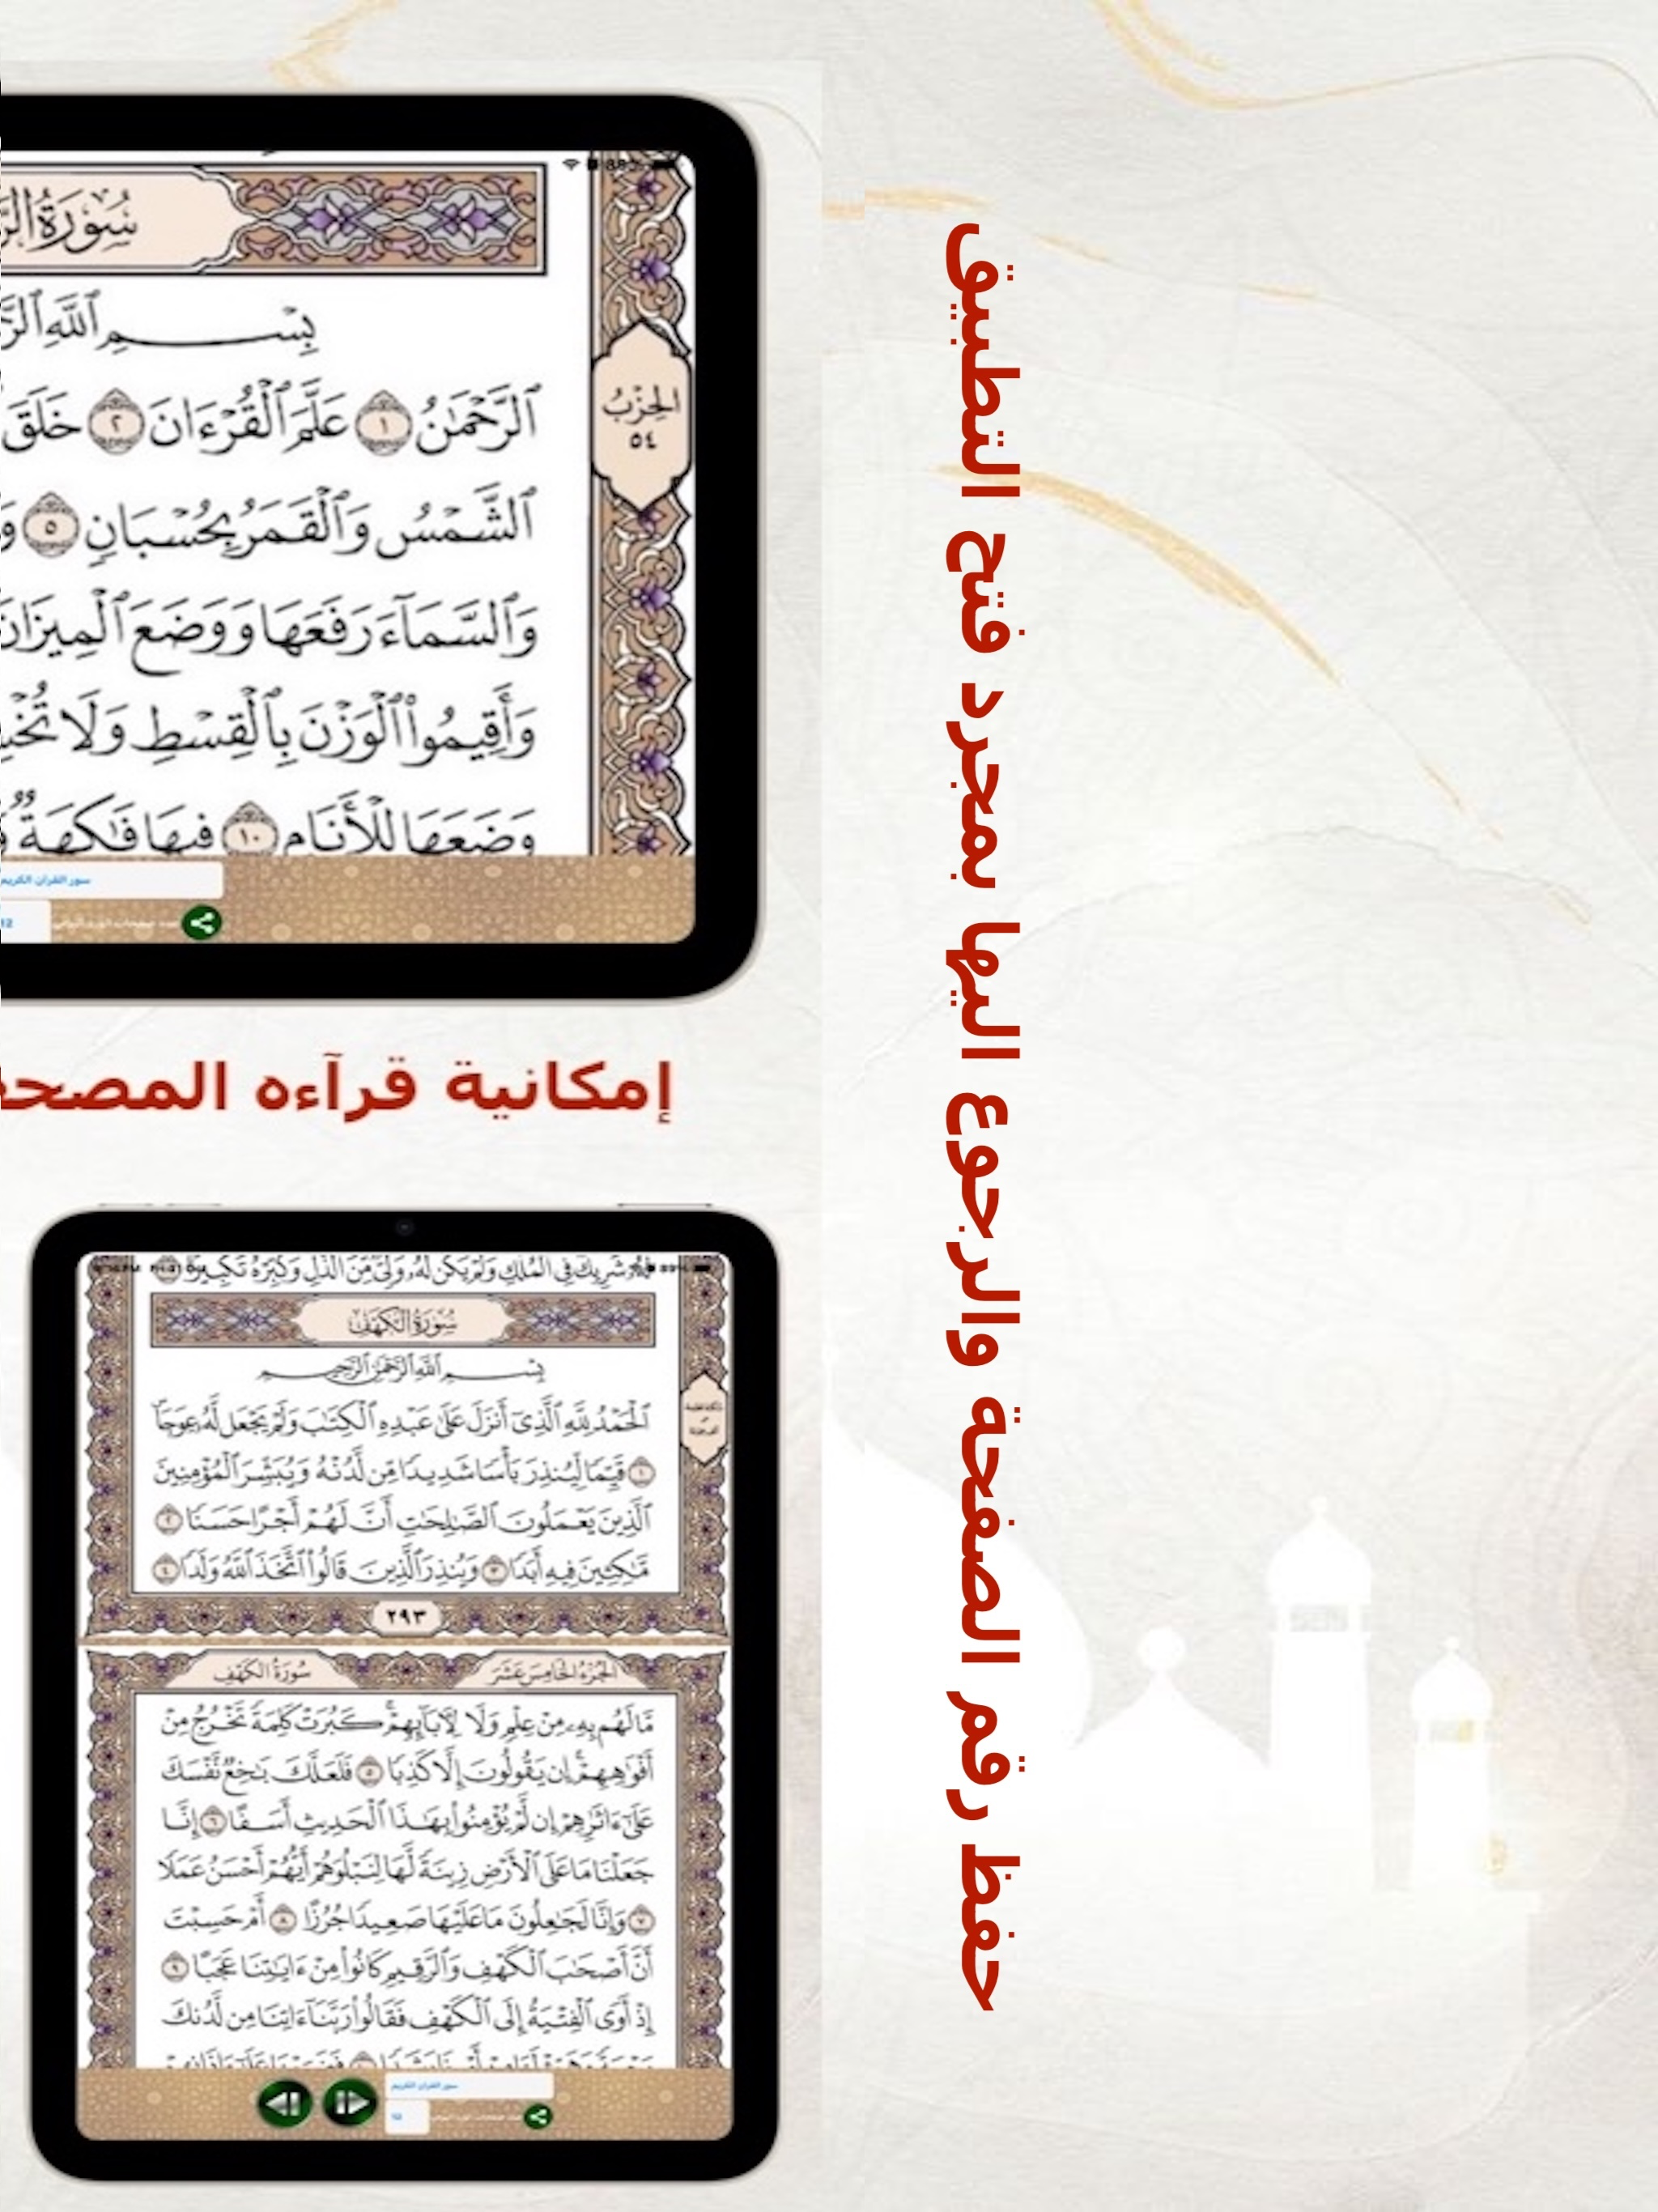 سُورَةُ
بِسْمِ ٱللَّهِ
ٱلرَّحْمَٰنُ ١ عَلَّمَ ٱلْقُرْءَانَ ٢ خَلَقَ
ٱلشَّمْسُ وَٱلْقَمَرُ بِحُسْبَانٍ ٥
وَٱلسَّمَآءَ رَفَعَهَا وَوَضَعَ ٱلْمِيزَانَ
وَأَقِيمُوا۟ ٱلْوَزْنَ بِٱلْقِسْطِ وَلَا
وَضَعَهَا لِلْأَنَامِ ١٠ فِيهَا فَٰكِهَةٌ
الحِزْبُ
٥٤
سور القرآن الكريم
12
إمكانية قرآءه
شَرِيكٌ فِى ٱلْمُلْكِ وَلَمْ يَكُن لَّهُۥ وَلِىٌّ مِّنَ ٱلذُّلِّ وَكَبِّرْهُ تَكْبِيرًۢا
سُورَةُ الكَهْفِ
بِسْمِ ٱللَّهِ ٱلرَّحْمَٰنِ ٱلرَّحِيمِ
ٱلْحَمْدُ لِلَّهِ ٱلَّذِىٓ أَنزَلَ عَلَىٰ عَبْدِهِ ٱلْكِتَٰبَ وَلَمْ يَجْعَل لَّهُۥ عِوَجَا
١ قَيِّمًا لِّيُنذِرَ بَأْسًا شَدِيدًا مِّن لَّدُنْهُ وَيُبَشِّرَ ٱلْمُؤْمِنِينَ
ٱلَّذِينَ يَعْمَلُونَ ٱلصَّٰلِحَٰتِ أَنَّ لَهُمْ أَجْرًا حَسَنًا ٢
مَّٰكِثِينَ فِيهِ أَبَدًا ٣ وَيُنذِرَ ٱلَّذِينَ قَالُوا۟ ٱتَّخَذَ ٱللَّهُ وَلَدًا ٤
٢٩٣
الجُزْءُ الخَامِسَ عَشَرَ
سُورَةُ الكَهْفِ
مَّا لَهُم بِهِۦ مِنْ عِلْمٍ وَلَا لِءَابَآئِهِمْ كَبُرَتْ كَلِمَةً تَخْرُجُ مِنْ
أَفْوَٰهِهِمْ إِن يَقُولُونَ إِلَّا كَذِبًا ٥ فَلَعَلَّكَ بَٰخِعٌ نَّفْسَكَ
عَلَىٰٓ ءَاثَٰرِهِمْ إِن لَّمْ يُؤْمِنُوا۟ بِهَٰذَا ٱلْحَدِيثِ أَسَفًا ٦ إِنَّا
جَعَلْنَا مَا عَلَى ٱلْأَرْضِ زِينَةً لَّهَا لِنَبْلُوَهُمْ أَيُّهُمْ أَحْسَنُ عَمَلًا
٧ وَإِنَّا لَجَٰعِلُونَ مَا عَلَيْهَا صَعِيدًا جُرُزًا ٨ أَمْ حَسِبْتَ
أَنَّ أَصْحَٰبَ ٱلْكَهْفِ وَٱلرَّقِيمِ كَانُوا۟ مِنْ ءَايَٰتِنَا عَجَبًا ٩
إِذْ أَوَى ٱلْفِتْيَةُ إِلَى ٱلْكَهْفِ فَقَالُوا۟ رَبَّنَآ ءَاتِنَا مِن لَّدُنكَ
سور القرآن الكريم
حفظ رقم الصفحة والرجوع اليها بمجرد فتح التطبيق